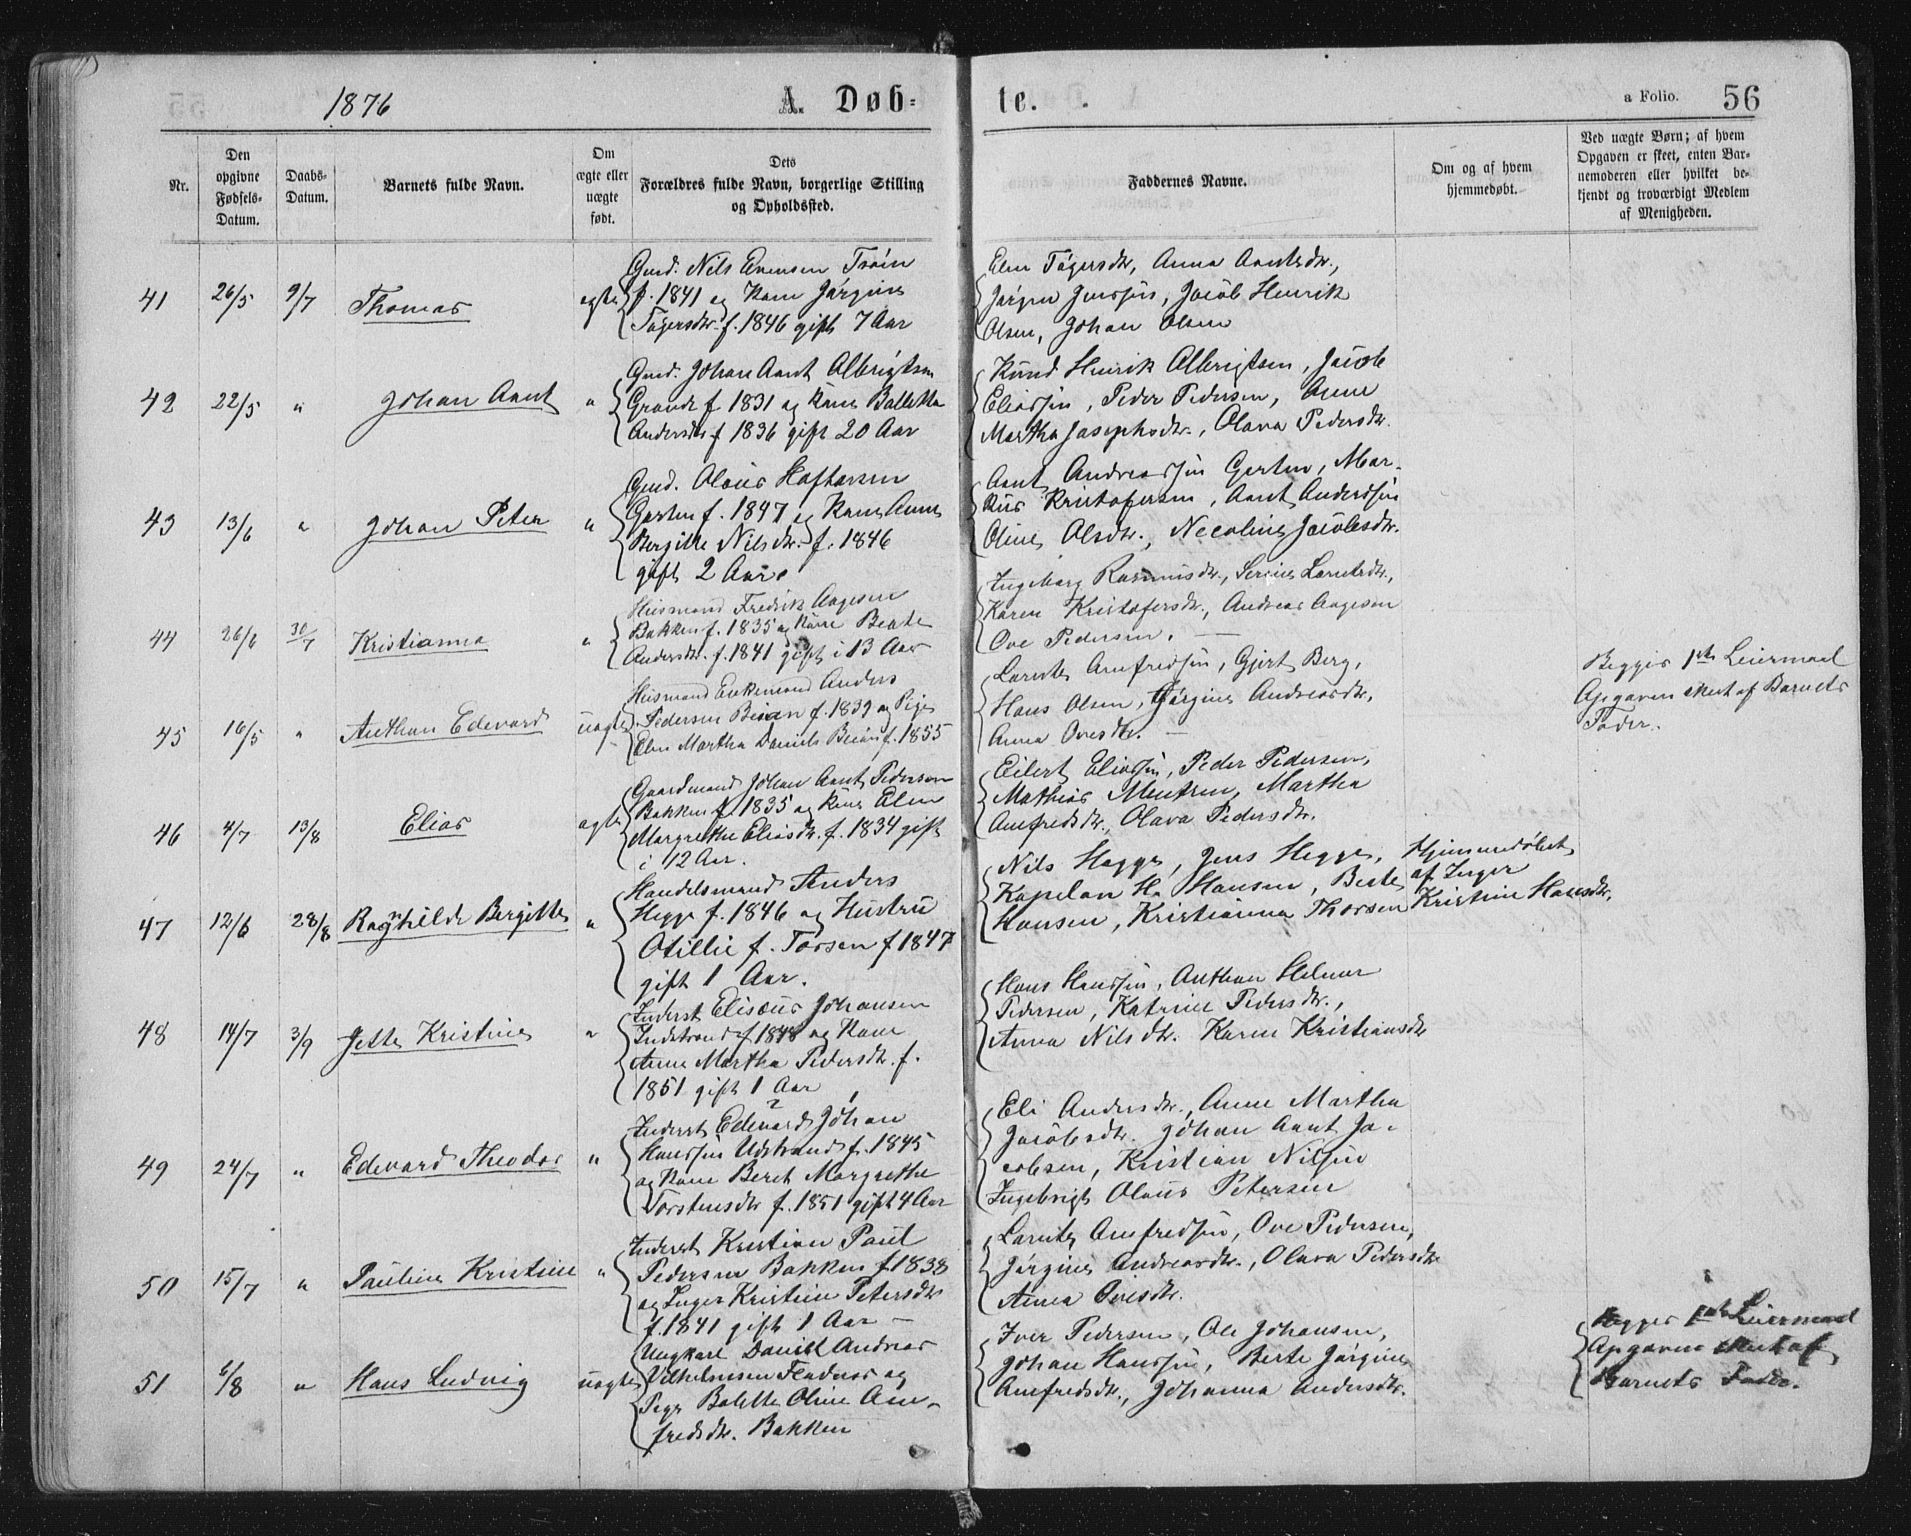 1876
A. Døb=
te.
a Folio. 56
Nr.
Den opgivne Fødsels-Datum.
Daabs-Datum.
Barnets fulde Navn.
Om ægte eller uægte født.
Dets Forældres fulde Navn, borgerlige Stilling og Opholdssted.
Faddernes Navne.
Om og af hvem hjemmedøbt.
Ved uægte Børn; af hvem Opgaven er skeet, enten Barnemoderen eller hvilket bekjendt og troværdigt Medlem af Menigheden.
41 26/5 9/7 Thomas ægte
Gmd. Nils Evensen
f. 1841 og Kone Jørgine
f. 1846 gift 7 Aar
Jørgen Jenssen, Jacob Henrik
Olsen, Johan Olsen
42 22/5 " Johan Aant "
Gmd. Johan Aant Albrigtsen
Grande f 1831 og Kone Balletta
Andersdtr f 1836 gift 20 Aar
Knud Henrik Albrigtsen, Jacob
Eliassen, Peder Pedersen, Anne
Martha Josephsdtr., Olava Pedersdtr.
43 13/6 " Johan Peter "
Gmd. Olaus Haftorsen
Garten f. 1847 og Kone Anne
Bergitte Nilsdtr. f. 1846
gift 2 Aar.
Aant Andreassen Garten, Mar-
kus Kristofersen, Aant Anderssen
Oline Olsdtr., Necoline Jacobsdtr.
44 26/6 30/7 Kristianna "
Husmand Fredrik Aagesen
Bakken f. 1835 og Kone Beate
Andersdtr. f. 1841 gift i 13 Aar
Ingeborg Rasmusdtr., Serine Larntsdtr.,
Karen Kristofersdtr., Andreas Aagesen
Ove Pedersen.
45 16/5 " Anthon Edevard uægte
Husmand Enkemand Anders
Pedersen Beian f. 1839 og Pige
Elen Martha Daniels Beian f. 1855
Larnts Amfredsen, Gjert Berg,
Hans Olsen, Jørgine Andreasdtr.
Anna Ovesdtr.
Begges 1ste Leiermaal
Opgaven skeet af Barnets
Fader.
46 4/7 13/8 Elias ægte
Gaardmand Johan Aant Pedersen
Bakken f. 1835 og Kone Elen
Margrethe Eliasdtr. f. 1834 gift
i 12 Aar.
Eilert Eliassen, Peder Pedersen,
Mathias Mentsen, Martha
Amfredsdtr., Olava Pedersdtr.
47 12/6 28/8 Ragnhilde Bergitte "
Handelsmand Anders
Hegge f. 1846 og Hustru
Otillie f. Torsen f 1847
gift 1 Aar.
Nils Hegge, Jens Hegge,
Kapelan H. Hansen, Beate
Hansen, Kristianna Thorsen
Hjemmedøbt
af Inger
Kristine Hansdtr.
48 14/7 3/9 Jette Kristine "
Inderst Elisæus Johansen
Indstrand f 1848 og Kone
Anne Martha Pedersdtr. f.
1851 gift 1 Aar
Hans Hanssen, Anthon Helmer
Pedersen, Katrine Pedersdtr.,
Anna Nilsdtr. Karen Kristiansdtr
49 24/7 " Edevard Theodor "
Inderst Edevard Johan
Hanssen Udstrand f. 1845
og Kone Beret Margrethe
Torstensdtr f. 1851 gift 4 Aar
Eli Andersdtr., Anne Martha
Jacobsdtr. Johan Aant Ja-
cobsen, Kristian Nilsen
Ingebrigt Olaus Petersen
50 15/7 " Pauline Kristine "
Inderst Kristian Paul
Pedersen Bakken f 1838
og Inger Kristine Petersdtr
f. 1841 gift 1 Aar
Larnts Amfredsen, Ove Pedersen,
Jørgine Andreasdtr., Olava Pedersdtr
Anna Ovesdtr.
51 6/8 " Hans Ludvig uægte
Ungkarl Daniel Andreas
Vilhelmsen og
Pige Balette Oline Am-
fredsdtr. Bakken
Iver Pedersen, Ole Johansen,
Johan Hanssen, Berte Jørgine
Amfredsdtr., Johanna Andersdtr.
Begges 1ste Leiermaal
Opgaven skeet af
Barnets Fader.